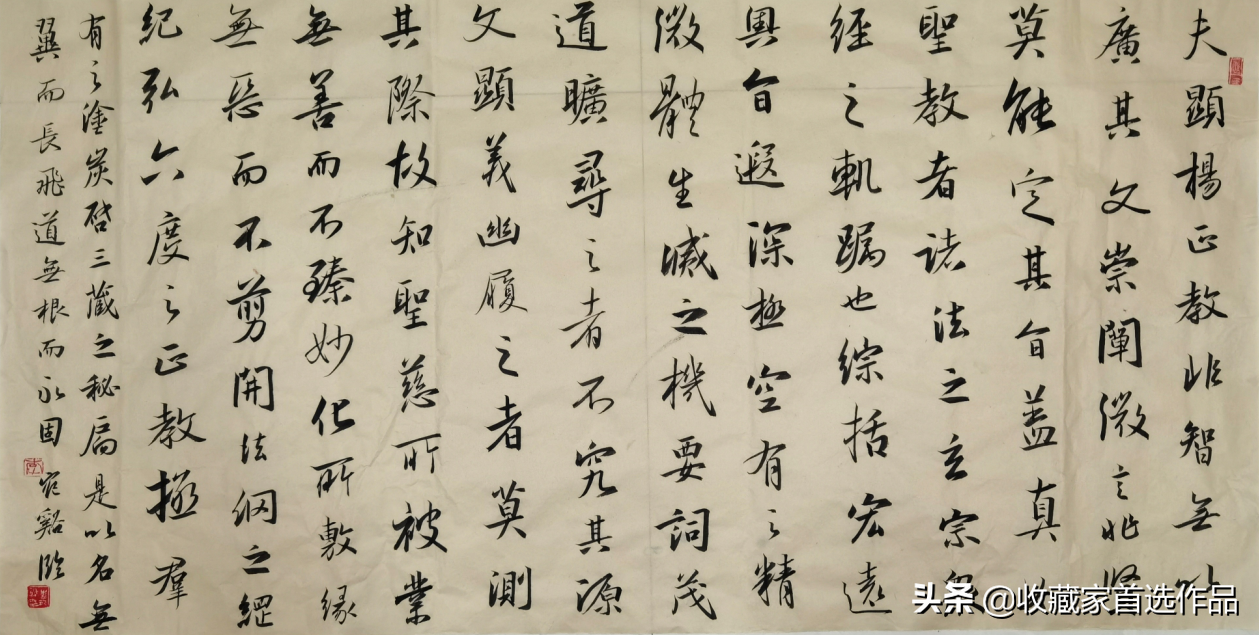 夫顯楊正教非智無以
廣其文崇闡微言非賢
莫能定其旨蓋真
聖教者諸法之玄宗衆
經之軌躅也綜括宏遠
奧旨遐深極空有之精
微體生滅之機要詞茂
道曠尋之者不究其源
文顯義幽履之者莫測
其際故知聖慈所被業
無善而不臻妙化所敷緣
無惡而不剪開法網之綱
紀弘六度之正教拯羣
有之塗炭啓三藏之秘扃是以名無
翼而長飛道無根而永固 谿臨
头条 @收藏家首选作品